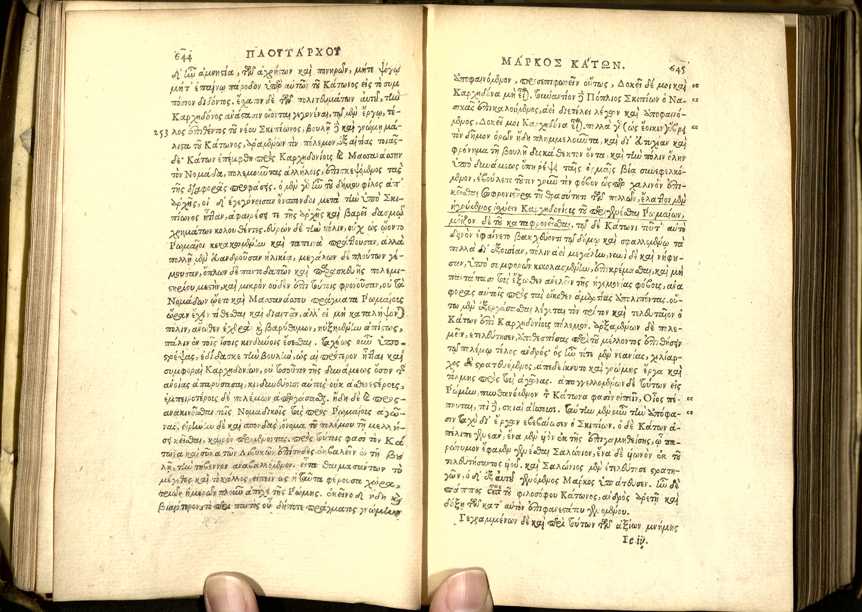 644 ΠΛΟΥΤΑΡΧΟΥ
δ' ἦν ἀμνηστία, τῶν ἀχρήστων καὶ πονηρῶν, μήτε ψόγῳ
μήτ' ἐπαίνῳ πάροδον ὑπὲρ αὐτῶν τοῦ Κάτωνος εἰς τὸ συμ
πόσιον διδόντος. ἔσχατον δὲ τῶν πολιτευμάτων αὐτοῦ, τὴν
Καρχηδόνος ἀνάστασιν οἴονται γεγονέναι, τῷ μὲν ἔργῳ, τέ-
253 λος ἐπιθέντος τοῦ νέου Σκηπίωνος, βουλῇ δὲ καὶ γνώμῃ μά-
λιστα τοῦ Κάτωνος, ἀραμένων τὸν πόλεμον. ἐξ αἰτίας τοιᾶσ-
δε. Κάτων ἐπέμφθη πρὸς Καρχηδονίους καὶ Μασσανάσσην
τὸν Νομάδα, πολεμοῦντας ἀλλήλοις, ἐπισκεψόμενος τὰς
τῆς διαφορᾶς προφάσεις. ὁ μὲν γὰρ ἦν τοῦ δήμου φίλος ἀπ'
ἀρχῆς, οἱ δ' ἐγεγόνεισαν ἔνσπονδοι μετὰ τὴν ὑπὸ Σκη-
πίωνος ἧτταν, ἀφαιρέσει τε τῆς ἀρχῆς καὶ βαρεῖ δασμῷ
χρημάτων κολουθέντες. εὑρὼν δὲ τὴν πόλιν, οὐχ ὡς ᾤοντο
Ῥωμαῖοι κεκακωμένην καὶ ταπεινὰ πράττουσαν, ἀλλὰ
πολλῇ μὲν εὐανδροῦσαν ἡλικίᾳ, μεγάλων δὲ πλούτων γέ-
μουσαν, ὅπλων δὲ παντοδαπῶν καὶ παρασκευῆς πολεμι-
στηρίου μεστήν, καὶ μικρὸν οὐδὲν ἐπὶ τούτοις φρονοῦσαν, οὐ τὰ
Νομάδων ᾤετο καὶ Μασσανάσσου πράγματα Ῥωμαίοις
ὥραν ἔχειν τίθεσθαι καὶ διαιτᾶν, ἀλλ' εἰ μὴ καταλήψονται
πόλιν, ἄνωθεν ἐχθρὰν καὶ βαρύθυμον, ηὐξημένην ἀπίστως,
πάλιν ἐν τοῖς ἴσοις κινδύνοις ἔσεσθαι. ταχέως οὖν ὑπο-
στρέψας, ἐδίδασκε τὴν βουλήν, ὡς αἱ πρότερον ἧτται καὶ
συμφοραὶ Καρχηδονίων, οὐ τοσοῦτον τῆς δυνάμεως ὅσον τῆς
ἀνοίας ἀπαρύσασαι, κινδυνεύουσιν αὐτοὺς οὐκ ἀσθενεστέρους,
ἐμπειροτέρους δὲ πολεμεῖν ἀπεργάσασθαι. ἤδη δὲ καὶ προσ-
ανακινεῖσθαι τοῖς Νομαδικοῖς τοὺς πρὸς Ῥωμαίους ἀγῶ-
νας, εἰρήνην δὲ καὶ σπονδὰς, ὄνομα τοῦ πολέμου τῇ μελλή-
σει κεῖσθαι, καιρὸν περιμένοντος. πρὸς τούτοις φασὶ τὸν Κά
τωνα καὶ σῦκα τῶν Λιβυκῶν ἐπίτηδες ἐκβαλεῖν ἐν τῇ βου
λῇ, τὴν τήβεννον ἀναβαλόμενον. εἶτα θαυμασάντων τὸ
μέγεθος καὶ τὸ κάλλος, εἰπεῖν ὡς ἡ ταῦτα φέρουσα χώρα,
τριῶν ἡμερῶν πλοῦν ἀπέχει τῆς Ῥώμης. ἐκεῖνο δ' ἤδη καὶ
βιαιότερον, τὸ περὶ παντὸς οὗ δήποτε πράγματος γνώμην
ΜΑΡΚΟΣ ΚΑΤΩΝ. 645
ἀποφαινόμενον, προσεπιφωνεῖν οὕτως, Δοκεῖ δέ μοι καὶ
Καρχηδόνα μὴ εἶναι. τοὐναντίον δὲ Πόπλιος Σκιπίων ὁ Να-
σικᾶς ἐπικαλούμενος, ἀεὶ διετέλει λέγων καὶ ἀποφαινό-
μενος, Δοκεῖ μοι Καρχηδόνα εἶναι. πολλὰ γὰρ (ὡς ἔοικεν) ὕβρει
τὸν δῆμον ὁρῶν ἤδη πλημμελοῦντα, καὶ δι' εὐτυχίαν καὶ
φρόνημα τῇ βουλῇ δυσκάθεκτον ὄντα, καὶ τὴν πόλιν ὅλην
ὑπὸ δυνάμεως ὅπη ῥέψειε ταῖς ὁρμαῖς βίᾳ συνεφελκό-
μενον, ἐβούλετο τοῦτον γοῦν τὸν φόβον ὥσπερ χαλινὸν ἐπι-
κεῖσθαι σωφρονιστῆρα τῇ θρασύτητι τῶν πολλῶν, ἔλαττον μὲν
ἡγούμενος ἰσχύειν Καρχηδονίους τοῦ περιγενέσθαι Ῥωμαίων,
μεῖζον δὲ τοῦ καταφρονεῖσθαι, τῷ δὲ Κάτωνι τοῦτ' αὐτὸ
δεινὸν ἐφαίνετο βακχεύοντι τῷ δήμῳ καὶ σφαλλομένῳ τὰ
πολλὰ δι' ἐξουσίαν, πόλιν ἀεὶ μεγάλην, νῦν δὲ καὶ νήφου-
σαν, ὑπὸ συμφορῶν κεκολασμένην, ἐπικρέμασθαι, καὶ μὴ
παντάπασι τοὺς ἔξωθεν ἀνελεῖν τῆς ἡγεμονίας φόβους, ἀνα
φορὰς αὐτοῖς πρὸς τὰς οἴκοθεν ἁμαρτίας ἀπολιπόντας. οὕ-
τω μὲν ἐξεργάσασθαι λέγεται τὸν τρίτον καὶ τελευταῖον ὁ
Κάτων ἐπὶ Καρχηδονίους πόλεμον. ἀρξαμένων δὲ πολε-
μεῖν, ἐτελεύτησεν, ἀποθεσπίσας περὶ τοῦ μέλλοντος ἐπιθήσειν
τῷ πολέμῳ τέλος ἀνδρός· ὃς ἦν τότε μὲν νεανίας, χιλίαρ-
χος δὲ στρατευόμενος, ἀπεδείκνυτο καὶ γνώμης ἔργα καὶ
τόλμης πρὸς τοὺς ἀγῶνας. ἀπαγγελλομένων δὲ τούτων εἰς
Ῥώμην, πυνθανόμενον τὸν Κάτωνα φασὶν εἰπεῖν, Οἶος πέ-
πνυται, τοὶ δὲ, σκιαὶ ἀΐσσουσι. ταύτην μὲν οὖν τὴν ἀπόφα-
σιν ταχὺ δι' ἔργων ἐβεβαίωσεν ὁ Σκηπίων. ὁ δὲ Κάτων ἀ-
πέλιπε γενεὰν, ἕνα μὲν υἱὸν ἐκ τῆς ἐπιγαμηθείσης, ᾧ πα-
ρώνυμον ἔφαμεν γενέσθαι Σαλώνιον, ἕνα δὲ υἱωνὸν ἐκ τοῦ
τελευτήσαντος υἱοῦ. καὶ Σαλώνιος μὲν ἐτελεύτησε στρατη-
γῶν, ὁ δ' ἐξ αὐτοῦ γενόμενος Μάρκος ὑπάτευσεν. ἦν δὲ
πάππος οὗτος τοῦ φιλοσόφου Κάτωνος, ἀνδρὸς ἀρετῇ καὶ
δόξῃ τῶν κατ' αὐτὸν ἐπιφανεστάτου γενομένου.
Γεγραμμένων δὲ καὶ περὶ τούτων τῶν ἀξίων μνήμης